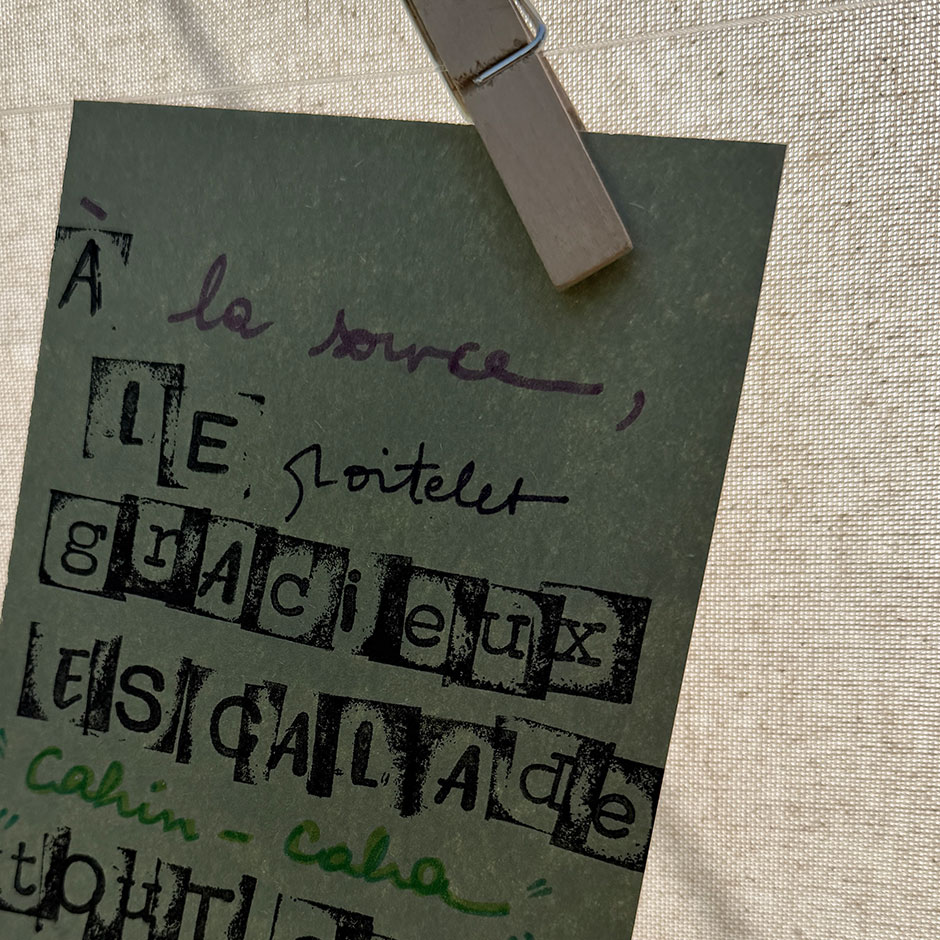 À la source,
LE roitelet
grAcieux
ESCALAde
"cahin-caha"